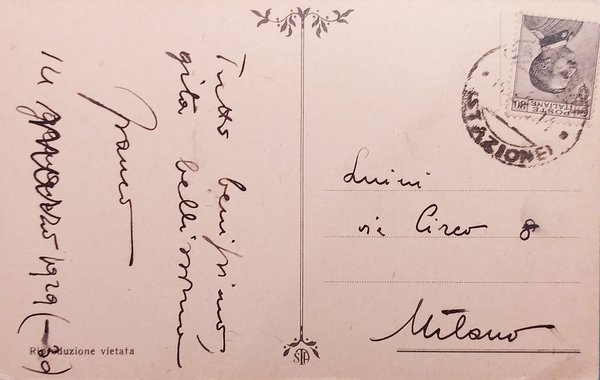 Tutto benissimo,
gita bellissima
Franco
14
1929 (-30)
Riproduzione vietata
STA
POSTE ITALIANE
30
STAZIONE
Luini
via Circo 8
Milano